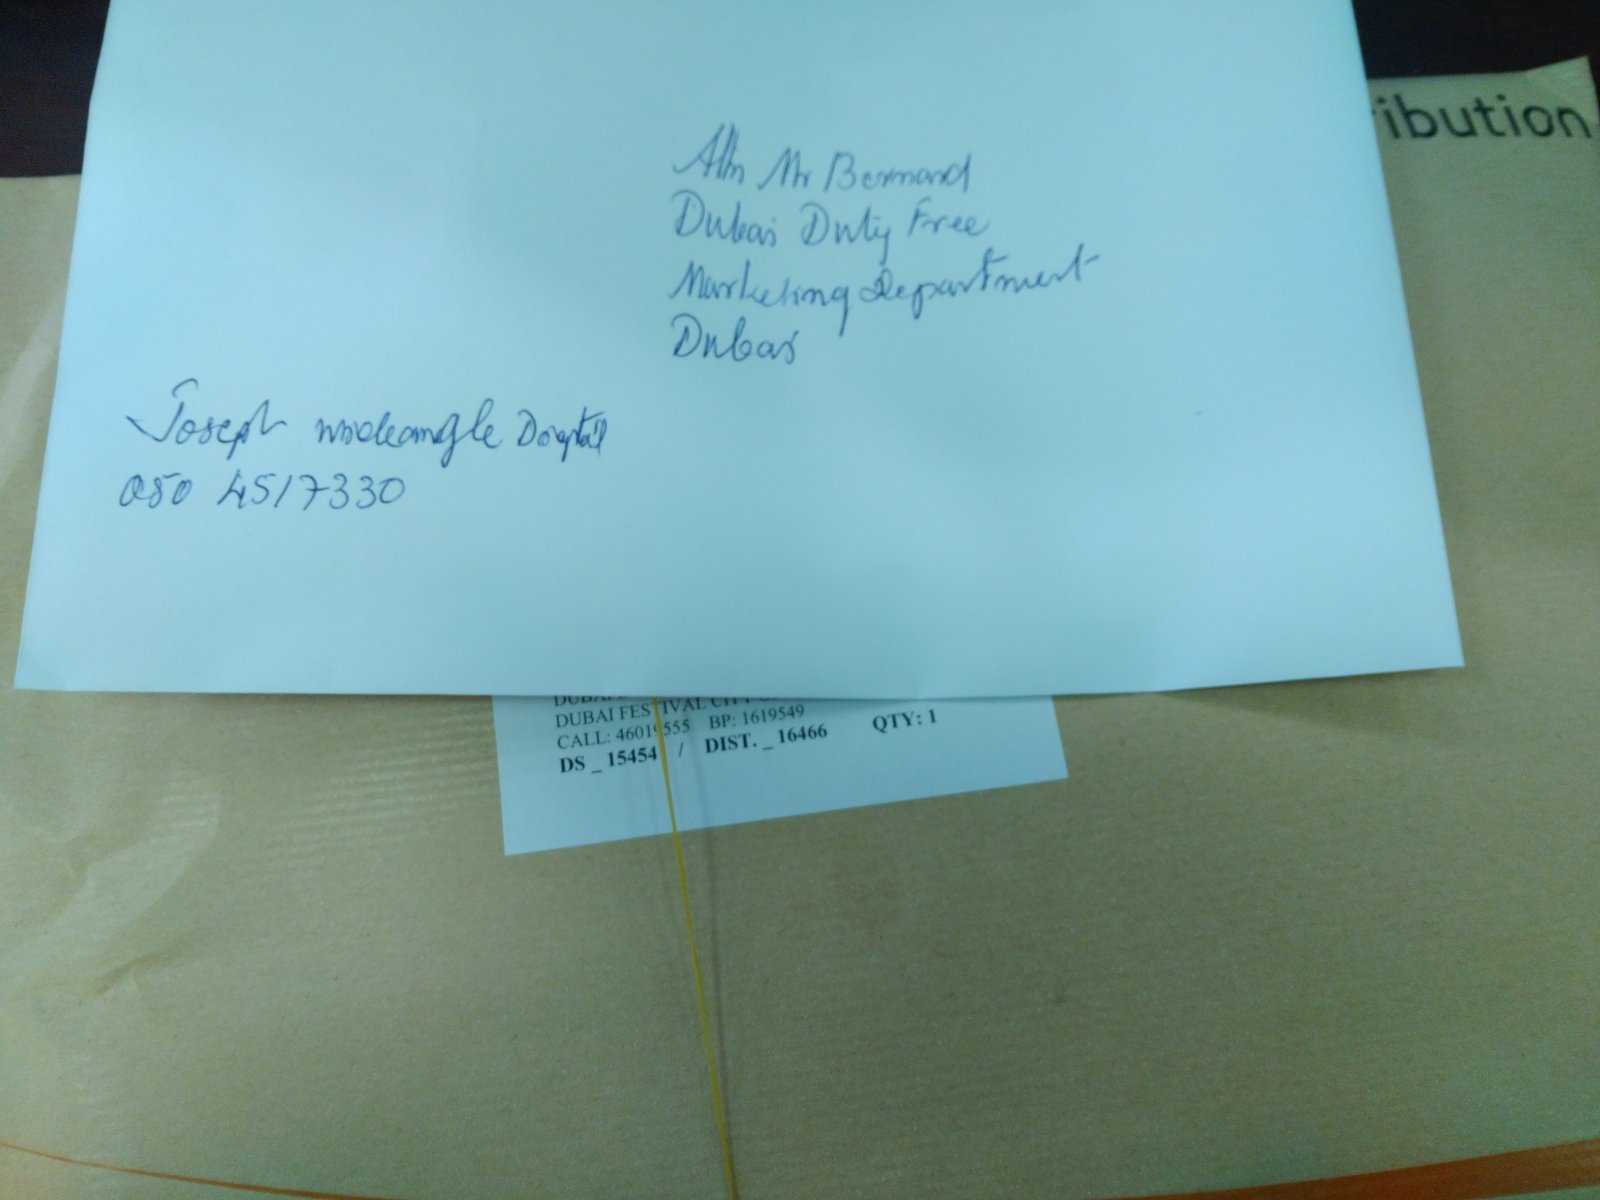 ribution
Attn Mr Bernard
Dubai Duty Free
Marketing Department
Dubai
Joseph wideangle
050 4517330
DUBAI FESTIVAL CITY
CALL: 46019555 BP: 1619549
DS _ 15454 / DIST. _ 16466 QTY: 1